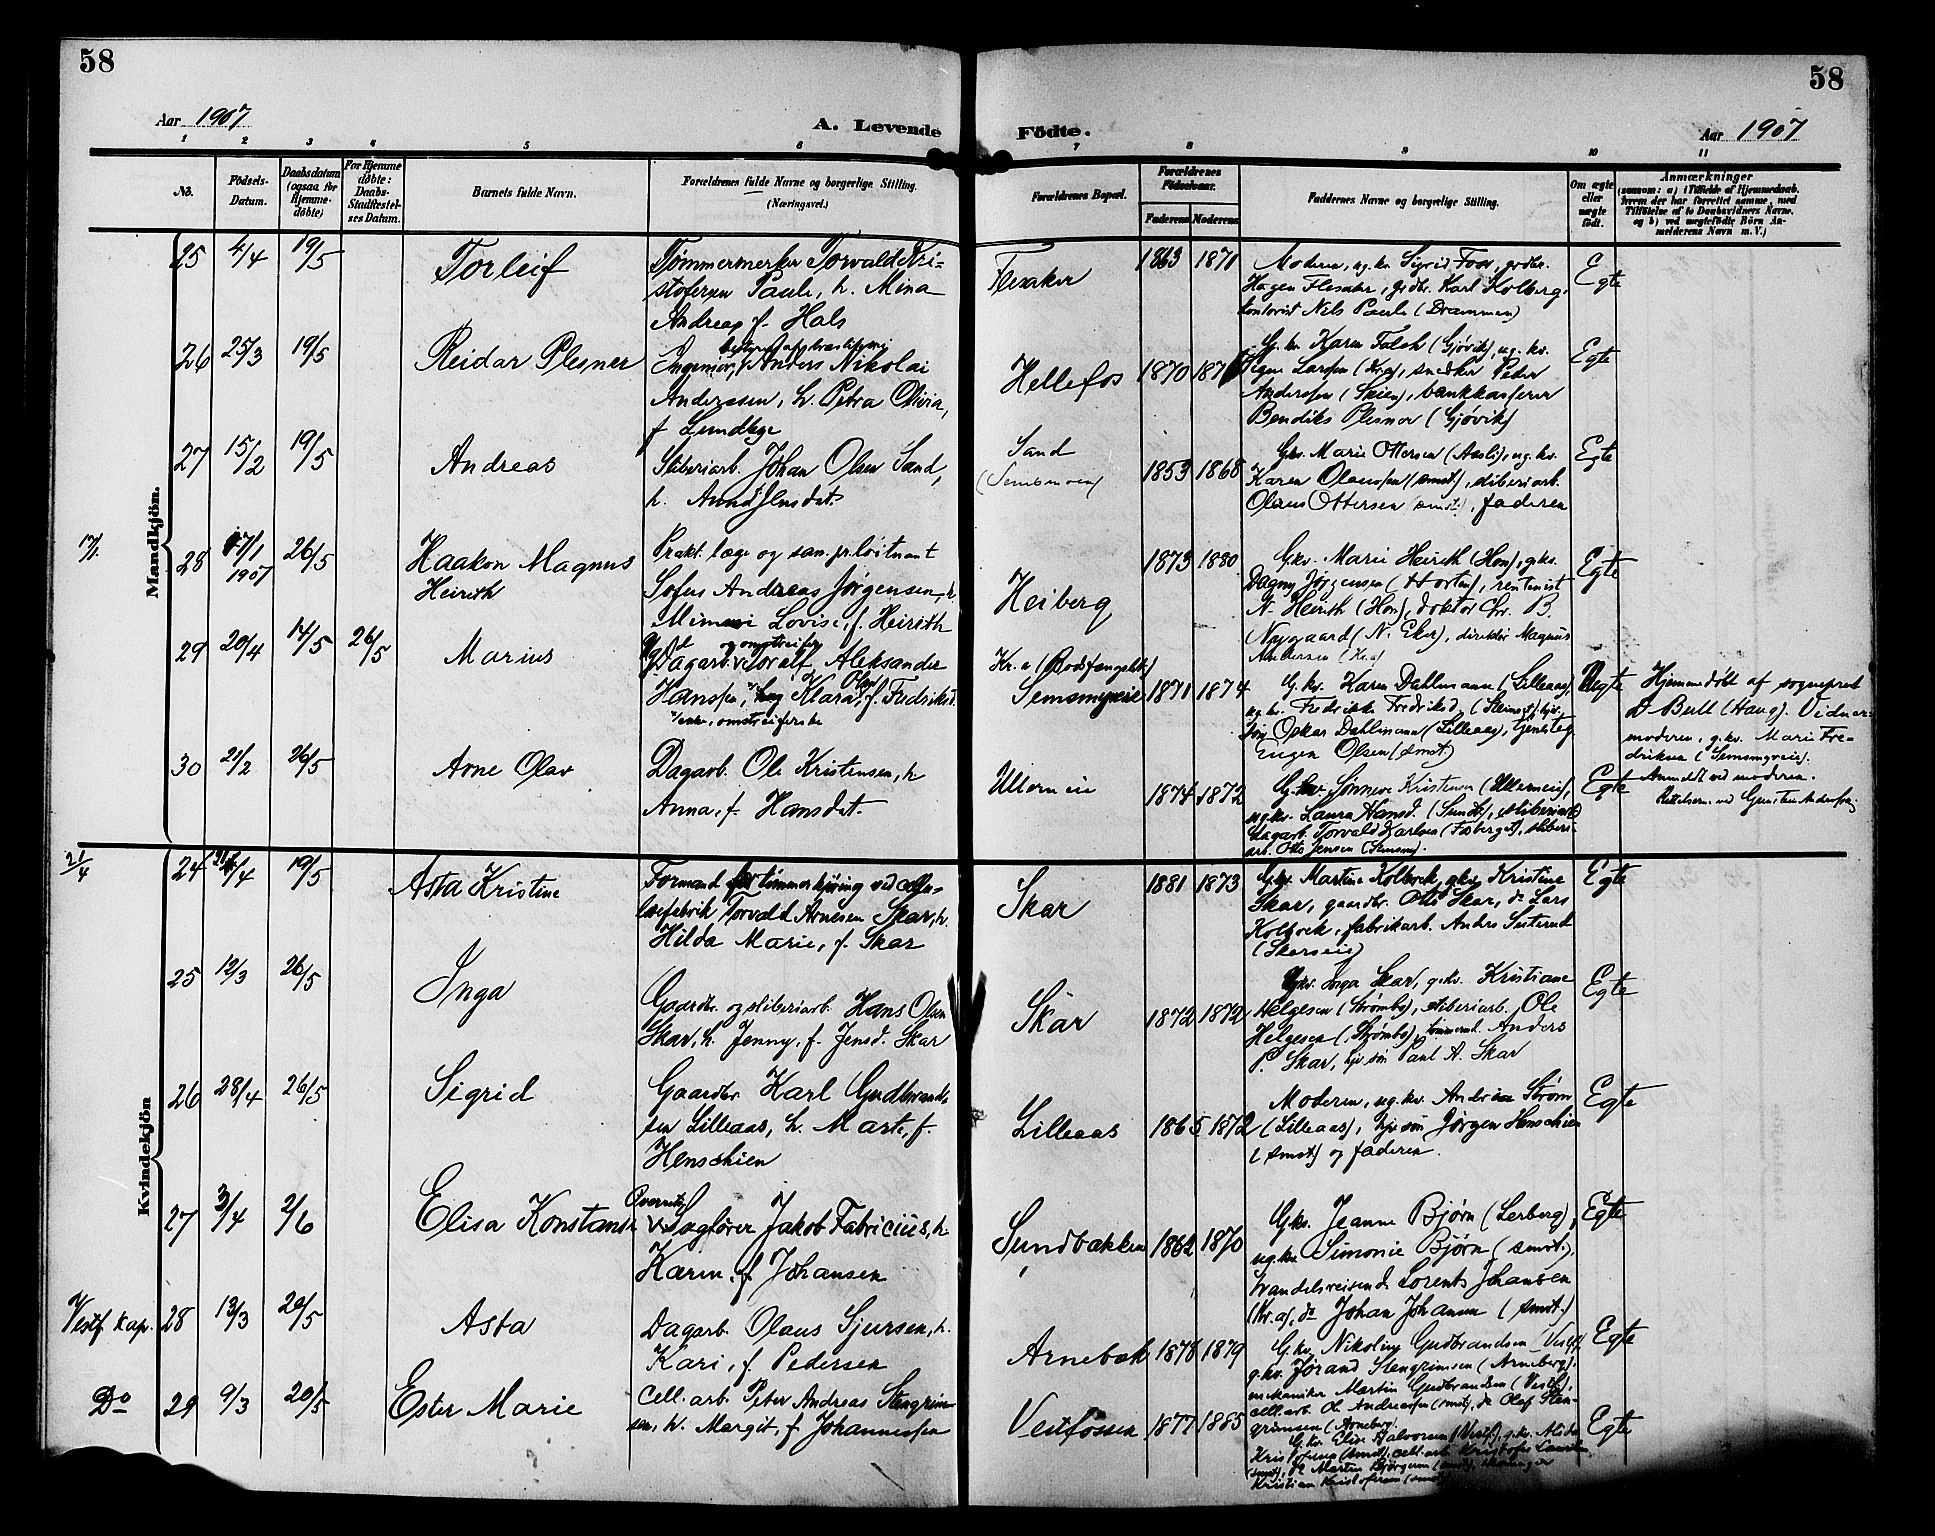 58
58
Aar 1907
A. Levende
Födte.
Aar 1907
1 2 3 4 5 6 7 8 9 10 11
No.
Födsels-
Datum.
Daabsdatum
(ogsaa for
Hjemme-
döbte)
For Hjemme
döbte:
Daabs-
Stadfestel-
ses Datum.
Barnets fulde Navn.
Forældrenes fulde Navne og borgerlige Stilling.
(Næringsvei.)
Forældrenes Bopæl.
Forældrenes
Födselsaar.
Faderens
Moderens
Faddernes Navne og borgerlige Stilling.
Om ægte
eller
uægte
födt.
Anmærkninger
(saasom: a) i Tilfælde af Hjemmedaab,
hvem der har forrettet samme, med
Tilföielse af to Daabsvidners Navne,
og b) ved uægtefödte Börn An-
melderens Navn m. V.)
Mandkjön.
25 4/4 19/5
Torleif
Tømmermerker Torvald Kri-
stofersen Paule, h. Mina
Andrea f. Hals
Flesaker
1863 1871
Moderen, ug. kv. Sigrid Foss, grdbr.
Hagen Flesaker, grdbr. Karl Kolberg,
kontorist Nils Paule (Drammen)
Egte
26 25/3 19/5
Reidar Plesner
Ingeniør, Anders Nikolai
Anderssen, h. Petra Olivia,
f
Hellefos
1870
G. kv. Karen Falch (Gjøvik), ug. kv.
Signe Larssen (Kra), snedker Peder
Anderssen (Skien), bankkasserer
Bendiks Plesner (Gjøvik)
Egte
27 15/2 19/5
Andreas
Sliberiarb. Johan Olsen Sand,
h. Anna Jensdat.
Sand
1853 1868
Gkv. Marie Ottersen (Aasli), ug. kv.
Karen Olaussen (smst), sliberiarb.
Olaus Ottersen (smst.), faderen
Egte
17/1
28 17/1
1907
26/5
Haakon Magnus
Heirith
Prakt. læge og san. pr. løitnant
Sofus Andreas Jørgensen, h
Mimmi Lovise, f. Heirith
Heiberg
1873 1880
Gkv. Marie Heirith (Hon), gkv.
Dagny Jørgensen (Horten), rentenist
N. Heirith (Hon), doktor Chr. B.
Nygaard (N. Eker), direktør Magnus
Andersen (Kra)
Egte
29 20/4 14/5 26/5
Marius
og omstreifer
Dagarb. Toralf Aleksander
Hanssen, og Klara Olga f. Fredriksd.
omstreiferske
Kr.a (Bodsfængslet)
Semsmyreie
1871 1874
G. kv. Karen Dahlmann (Lilleaas),
ug. kv. Fredrikke Fredriksd.
Oskar Dahlmann (Lilleaas),
Eugen Olsen (smst.)
Uegte
Hjemmedøbt af sogneprest
D. Bull (Haug). Vidner:
moderen, g.kv. Marie Fre-
driksen (Semsmyreie).
Anmeldt ved moderen.
30 21/2 26/5
Arne Olav
Dagarb. Ole Kristensen, h
Anna, f. Hansdat.
Ullern eie
1874 1872
G. kv. Sønneve Kristensen (Ullerneie),
ug. kv. Laura Hansd. (Sundt),
dagarb. Torvald Karlsen
arb. Otto Jensen
Egte
Kvindekjön
21/4
24 19/5
Asta Kristine
Formand for tømmerkjøring ved cellu-
losefabrik Torvald Arnesen Skar, h.
Hilda Marie, f. Skar
Skar
1881 1873
G.kv. Martine Kolbrek, gkv. Kristine
Skar, gaardbr. Otto Skar, do Lars
Kolbrek, fabrikarb. Anders
(Skarseie)
Egte
25 12/3 26/5
Inga
Gaardbr. og sliberiarb. Hans Olsen
Skar, h. Jenny, f. Jensd. Skar
Skar
1872 1872
Gkv. Inga Skar, g.kv. Kristiane
Helgesen (Strømbo), sliberiarb. Ole
Helgesen (Strømbo), Anders
P. Skar, hjv. søn Paul A. Skar
Egte
26 28/4 26/5
Sigrid
Gaardbr. Karl Gudbrand-
sen Lilleaas, h. Marte, f.
Henschien
Lilleaas
1865 1872
Moderen, ug. kv. Andrea Strøm
(Lilleaas), hjv. søn Jørgen Henschien
(smst) og faderen.
Egte
27 3/4 2/6
Elisa Konstanse
Overrets
Sagfører Jakob Fabricius, h.
Karen, f. Johansen
Sundbakken
1862 1870
Gkv. Jeanne Bjørn (Lerberg),
ug. kv. Simonie Bjørn (smst.),
handelsreisende Lorents Johansen
(Kr.a), do Johan Johansen (smst.)
Egte
Vestf. kap. 28 13/3 20/5
Asta
Dagarb. Olaus Sjursen, h.
Kari, f. Pedersen
Arnebæk
1878 1879
G. kv. Nikoline Gudbrandsen (Vestf),
g.kv. Jørand Stengrimsen (Arneberg),
mekaniker Martin Gudbrandsen (Vestf),
cell. arb. Ole Andreassen (smst), do Olaf Sten-
grimsen (Arneberg).
Egte
Do 29 9/3 20/5
Ester Marie
Cell. arb. Peter Andreas Stengrim-
sen, h. Margit, f. Johannessen
Vestfossen
1877 1885
G. kv. Elise Halvorsen (Vestf), g.kv. Alida
Kristofersen (smst), cell. arb. Kristofer
(smst), do Martin Bjørgum (smst),
Kristian Kristofersen (smst)
Egte